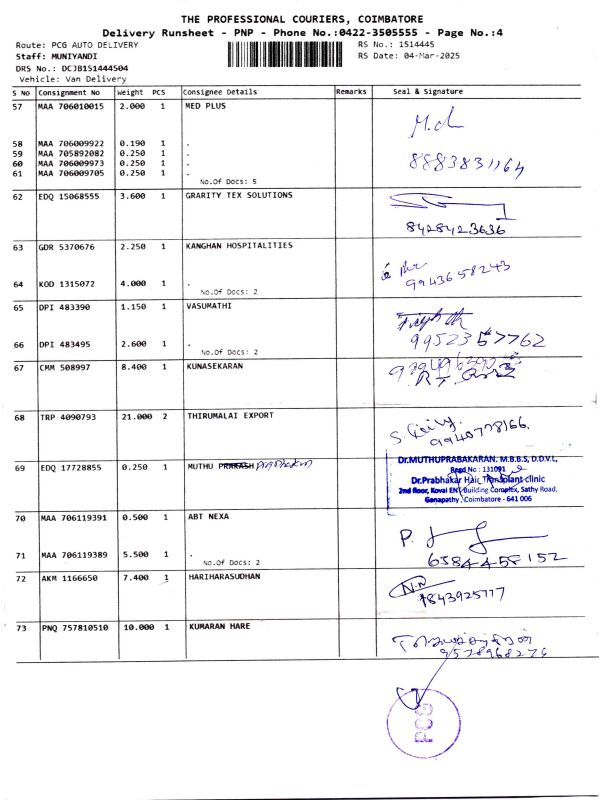 THE PROFESSIONAL COURIERS, COIMBATORE
Delivery Runsheet - PNP - Phone No.:0422-3505555 - Page No.:4
Route: PCG AUTO DELIVERY RS No.: 1514445
Staff: MUNIYANDI RS Date: 04-Mar-2025
DRS No.: DCJB151444504
Vehicle: Van Delivery
S No Consignment No Weight PCS Consignee Details Remarks Seal & Signature
57 MAA 706010015 2.000 1 MED PLUS
58 MAA 706009922 0.190 1 .
59 MAA 705892082 0.250 1 .
60 MAA 706009973 0.250 1 . 8883831164
61 MAA 706009705 0.250 1 .
No.Of Docs: 5
62 EDQ 15068555 3.600 1 GRARITY TEX SOLUTIONS
8428423636
63 GDR 5370676 2.250 1 KANGHAN HOSPITALITIES
9943658243
64 KOD 1315072 4.000 1 .
No.Of Docs: 2
65 DPI 483390 1.150 1 VASUMATHI
66 DPI 483495 2.600 1 . 9952357762
No.Of Docs: 2
67 CMM 508997 8.400 1 KUNASEKARAN
68 TRP 4090793 21.000 2 THIRUMALAI EXPORT
9940778166
69 EDQ 17728855 0.250 1 MUTHU PRAKASH Prabhakaran
Dr.MUTHUPRABAKARAN. M.B.B.S, D.D.V.L,
Regd No : 131091
Dr.Prabhakar Hair Transplant clinic
2nd floor, Kovai ENT Building Complex, Sathy Road,
Ganapathy, Coimbatore - 641 006
70 MAA 706119391 0.500 1 ABT NEXA
71 MAA 706119389 5.500 1 . 6384458152
No.Of Docs: 2
72 AKM 1166650 7.400 1 HARIHARASUDHAN
N.N
9843925777
73 PNQ 757810510 10.000 1 KUMARAN HARE
9578968276
PCG